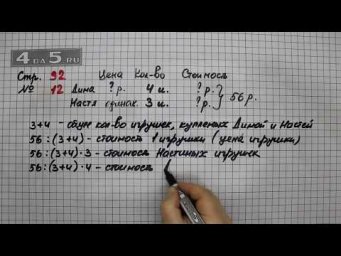 4 на 5.RU
Стр. 92 Цена Кол-во Стоимость
№ 12 Дима ? р. 4 и. ? р.
Настя одинак. 3 и. ? р. } 56 р.
3+4 - общее кол-во игрушек, купленных Димой и Настей
56 : (3+4) - стоимость 1 игрушки (цена игрушки)
56 : (3+4) · 3 - стоимость Настиных игрушек
56 : (3+4) · 4 - стоимость